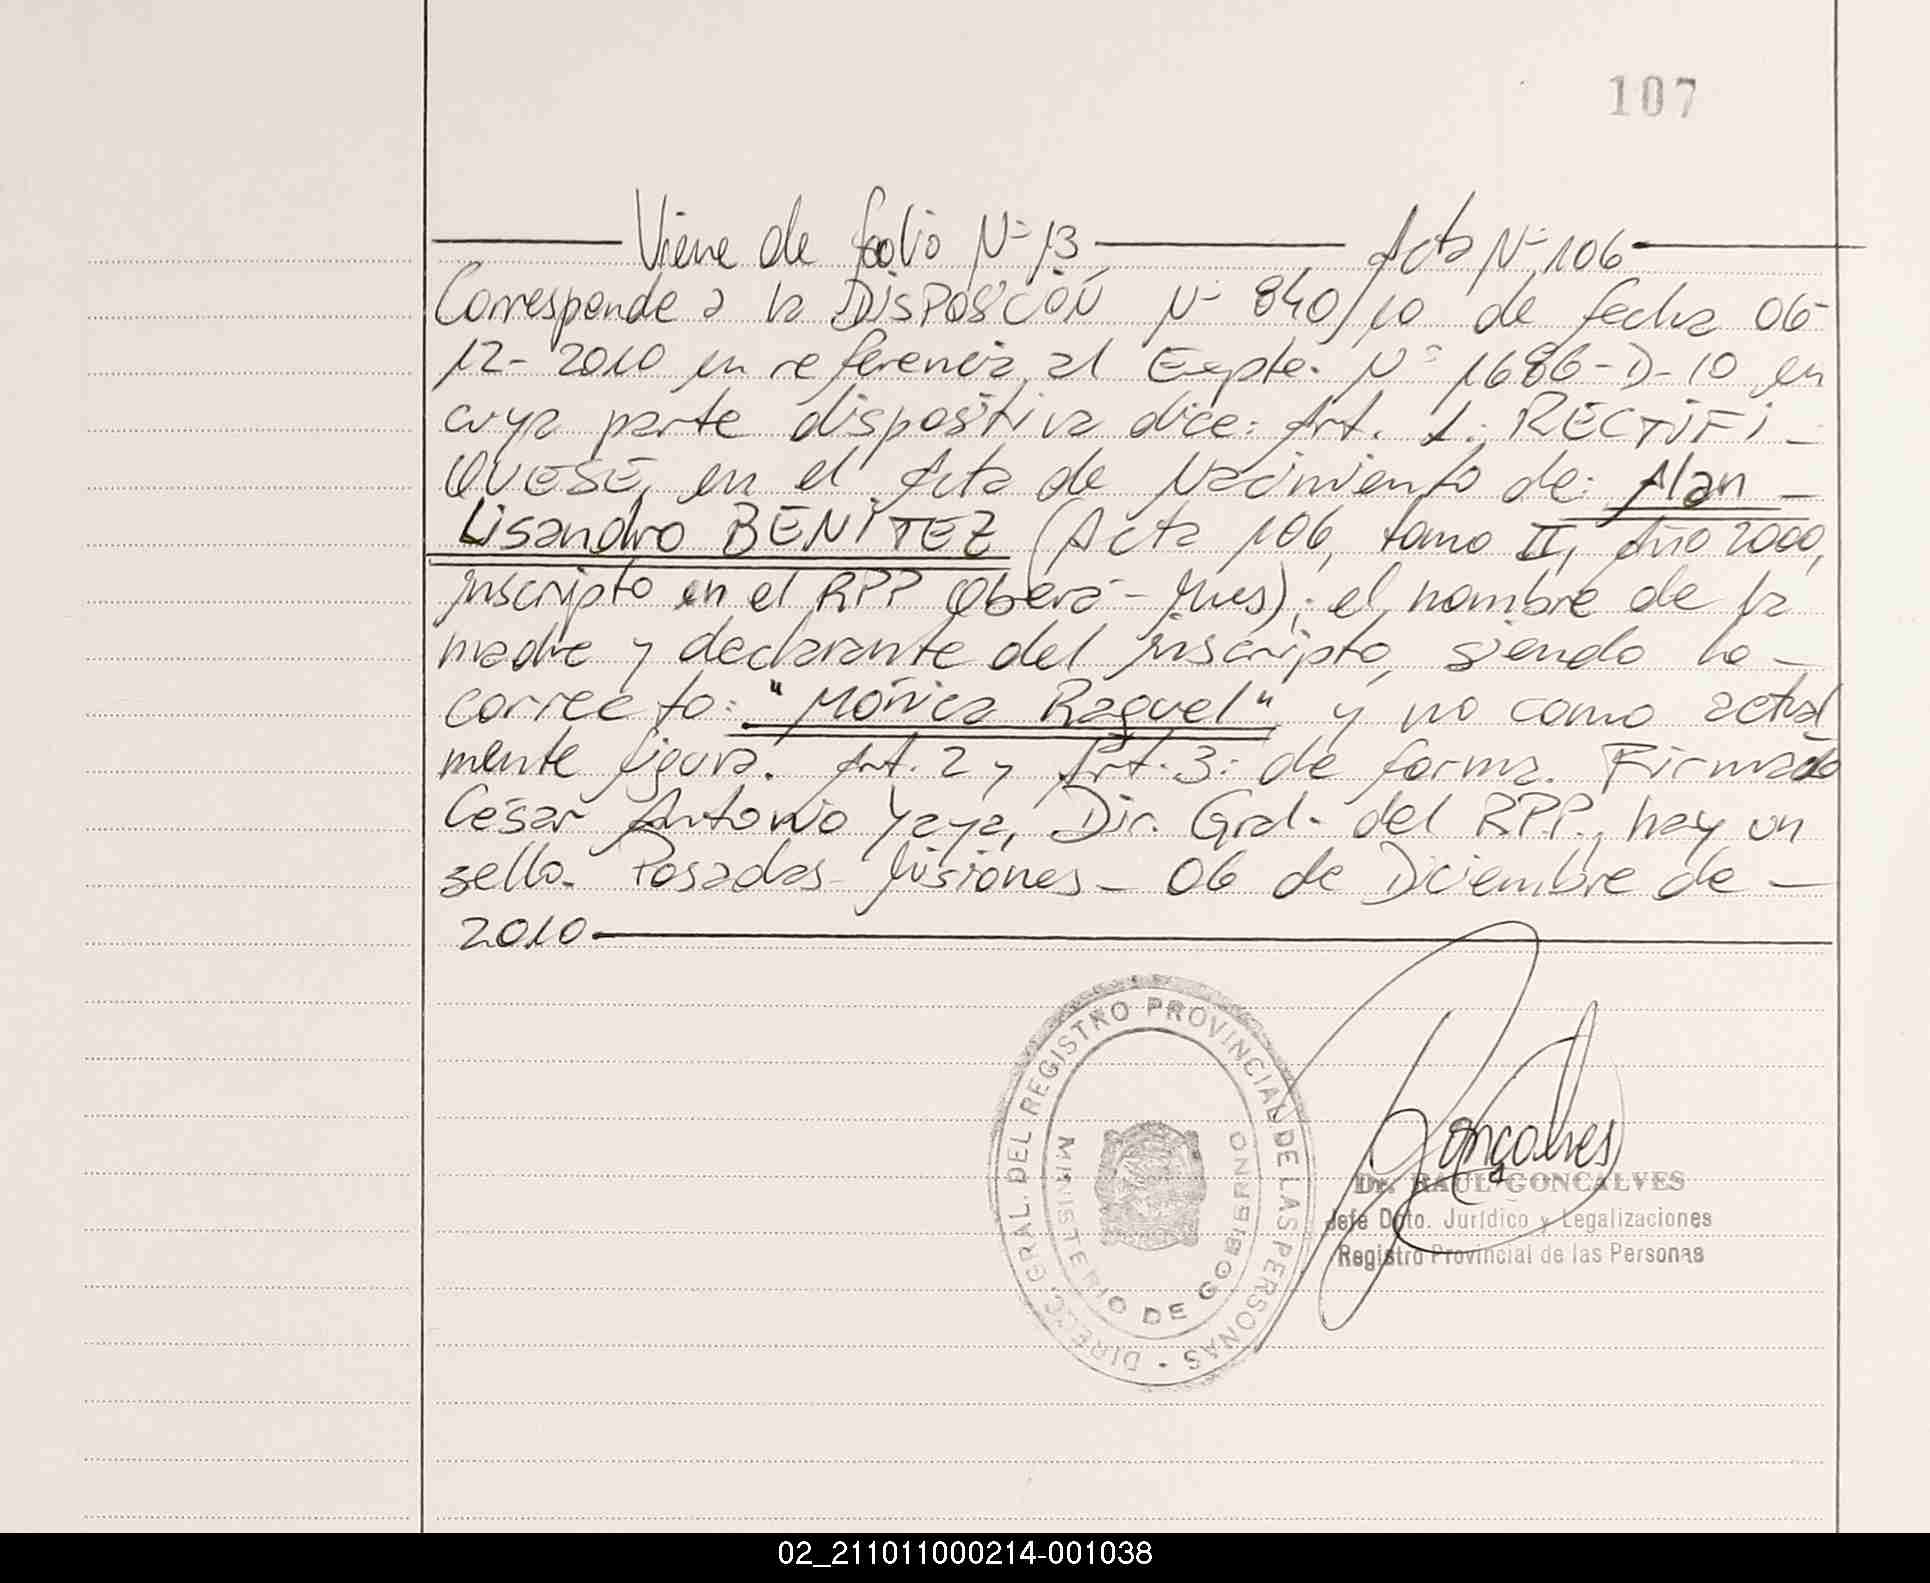 107
Viene de folio Nº 13 Acta Nº 106
Corresponde a la DISPOSICIÓN Nº 840/10 de fecha 06-
12-2010 en referencia al Expte. Nº 1686-D-10 en
cuya parte dispositiva dice: Art. 1: RECTIFI-
QUESE, en el Acta de Nacimiento de: Alan
Lisandro BENITEZ (Acta 106, tomo II, Año 2000,
inscripto en el RPP Oberá - Mnes); el nombre de la
madre y declarante del inscripto, siendo lo
correcto: "Mónica Raquel" y no como actual
mente figura. Art. 2 y Art. 3: de forma. Firmado
César Antonio Yaya, Dir. Gral. del RPP., hay un
sello. Posadas Misiones - 06 de Diciembre de
2010
DIREC. GRAL. DEL REGISTRO PROVINCIAL DE LAS PERSONAS
MINISTERIO DE GOBIERNO
Gonçalves
Dr. RAUL GONCALVES
Jefe Dpto. Jurídico y Legalizaciones
Registro Provincial de las Personas
02_211011000214-001038